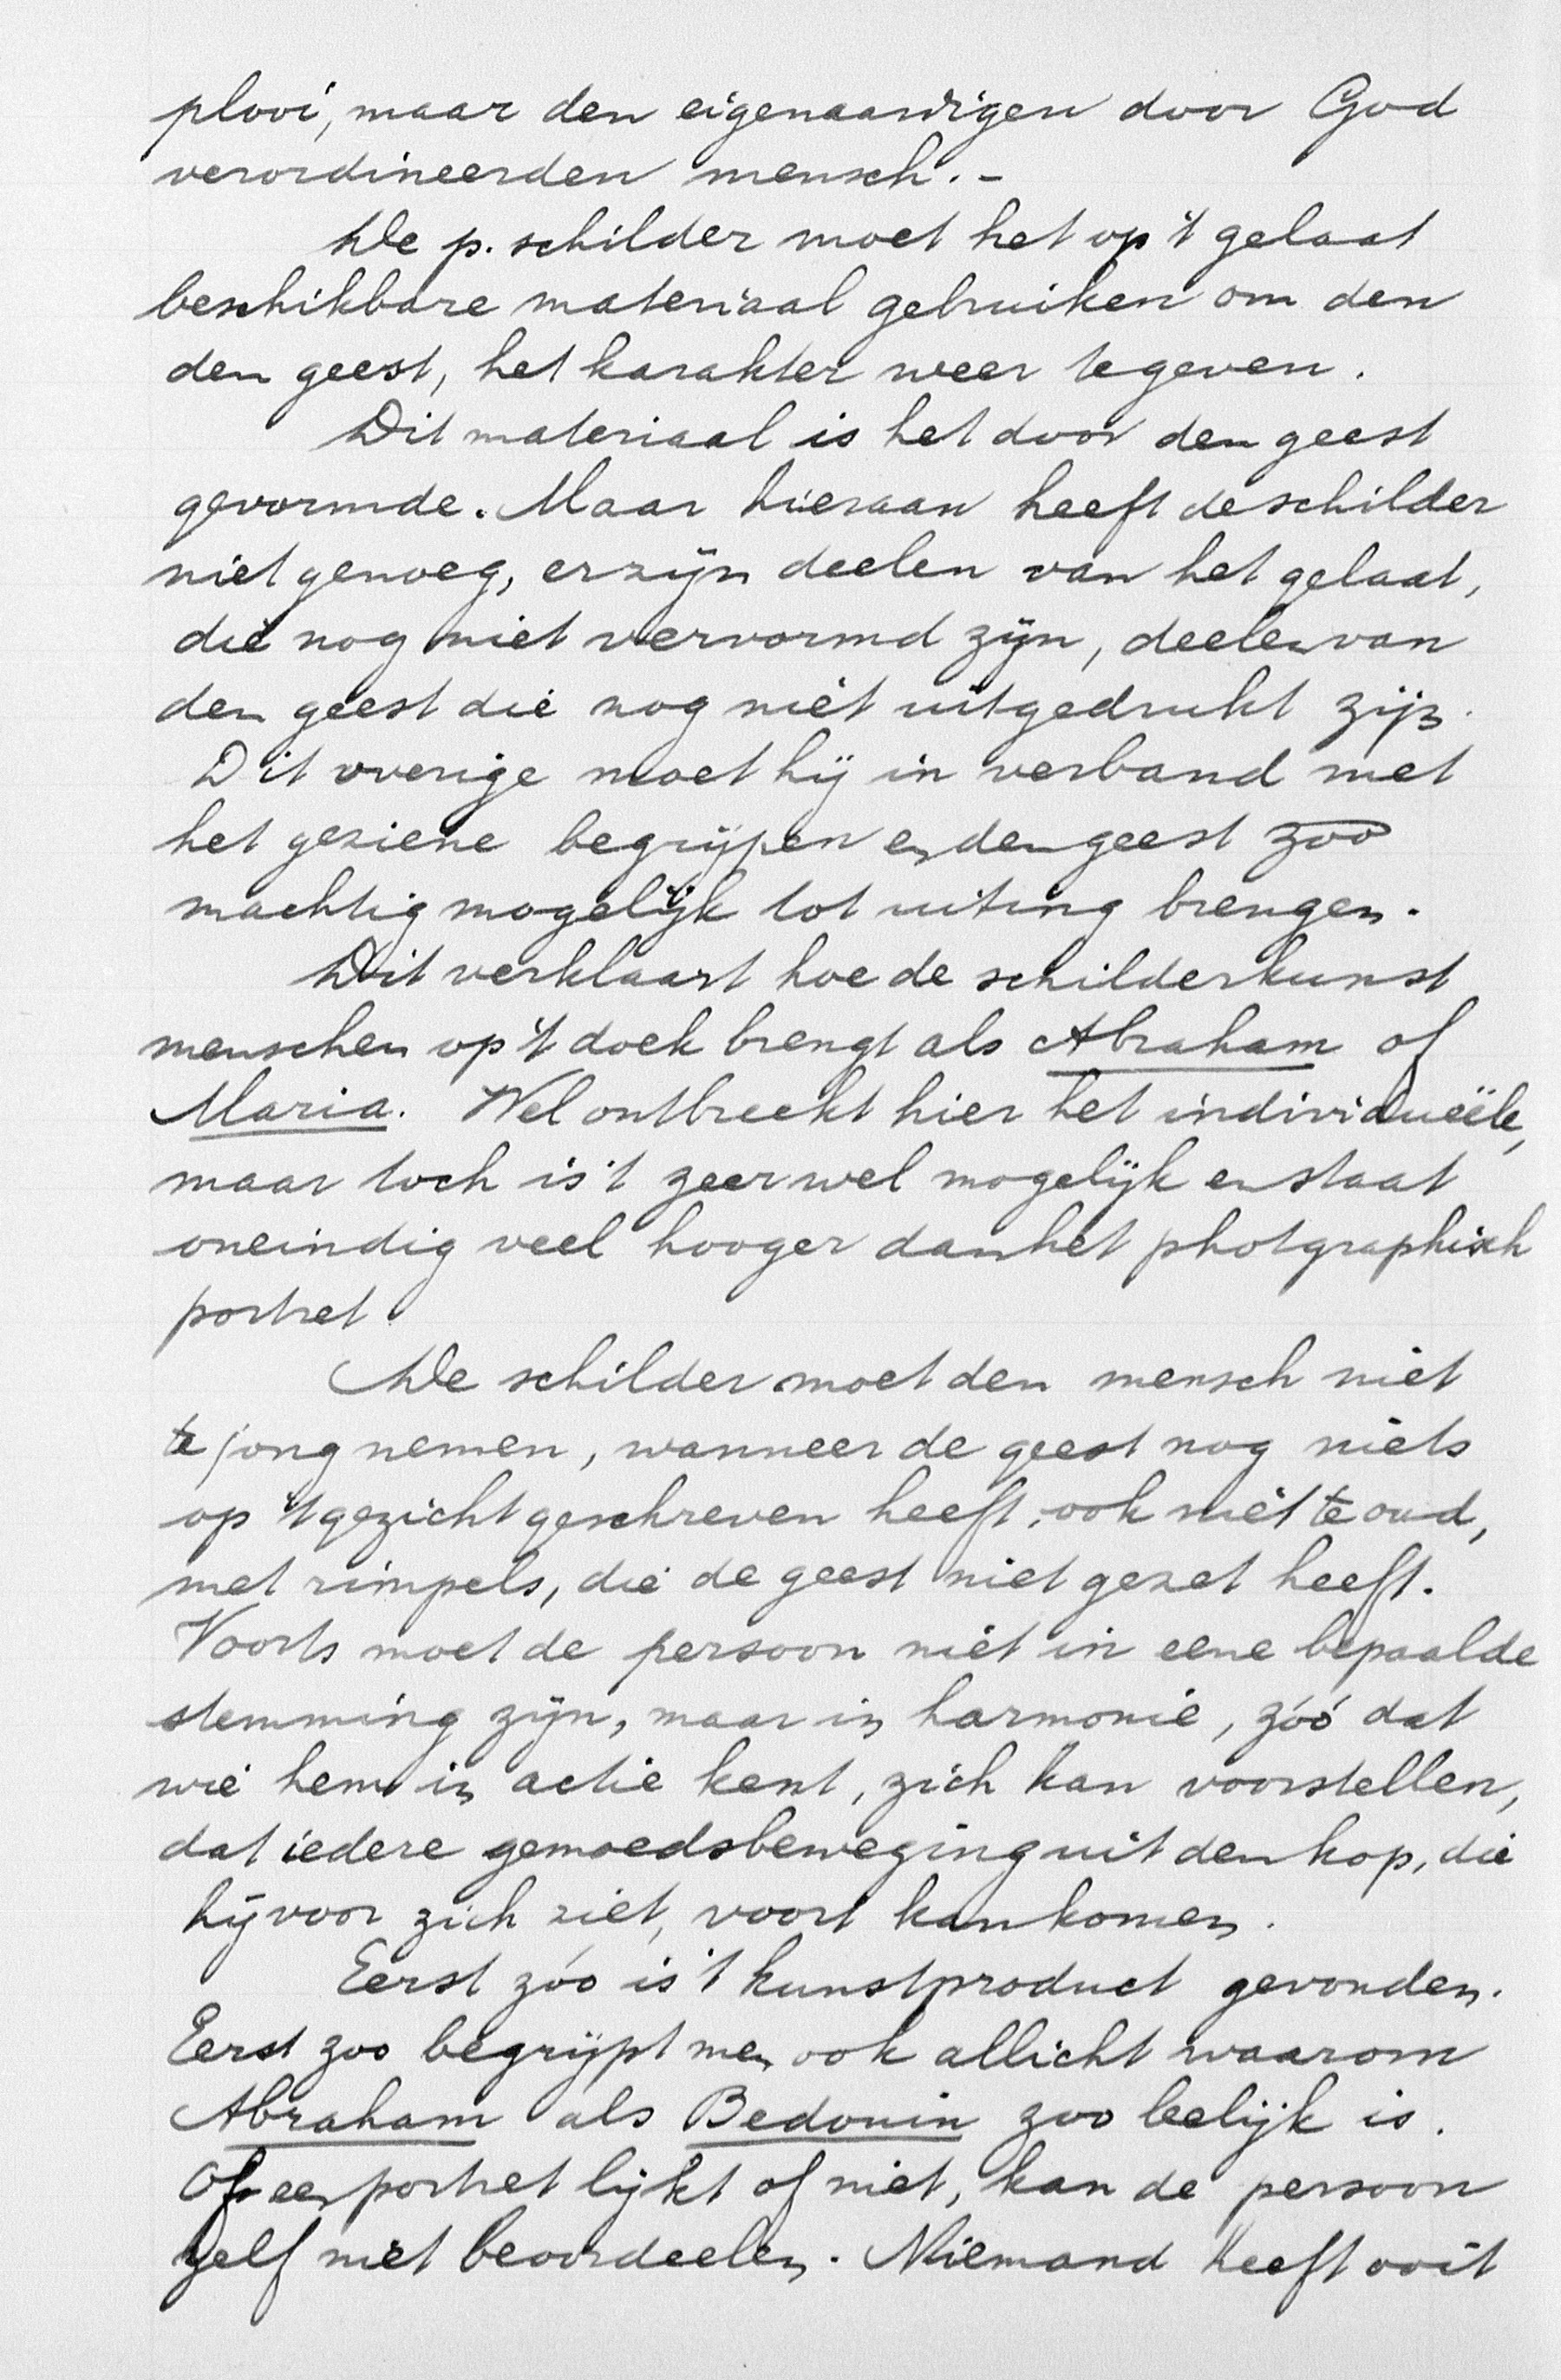 plooi, maar den eigenaardigen door God
verordineerden mensch. -
De p. schilder moet het op 't gelaat
beschikbare materiaal gebruiken om den
den geest, het karakter weer te geven.
Dit materiaal is het door den geest
gevormde. Maar hieraan heeft de schilder
niet genoeg, er zijn deelen van het gelaat,
die nog niet vervormd zijn, deelen van
den geest die nog niet uitgedrukt zijn.
Dit overige moet hij in verband met
het geziene begrijpen en den geest zoo
machtig mogelijk tot uiting brengen.
Dit verklaart hoe de schilderkunst
menschen op 't doek brengt als Abraham of
Maria. Wel ontbreekt hier het individueële,
maar toch is 't zeer wel mogelijk en staat
oneindig veel hooger dan het photgraphisch
portret.
De schilder moet den mensch niet
te jong nemen, wanneer de geest nog niets
op 't gezicht geschreven heeft, ook niet te oud,
met rimpels, die de geest niet gezet heeft.
Voorts moet de persoon niet in eene bepaalde
stemming zijn, maar in harmonie, zóó dat
wie hem in actie kent, zich kan voorstellen,
dat iedere gemoedsbeweging uit den kop, die
hij voor zich ziet, voort kan komen.
Eerst zóo is 't kunstproduct gevonden.
Eerst zoo begrijpt men ook allicht waarom
Abraham als Bedouin zoo leelijk is.
Of een portret lijkt of niet, kan de persoon
zelf niet beoordeelen. Niemand heeft ooit